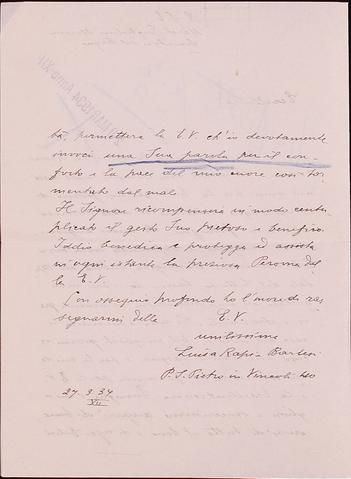 bà, permetterà la E.V. ch'io devotamente
invochi una Sua parola per il con-
forto e la pace del mio cuore così tor
mentato dal male.
Il Signore ricompenserà in modo centu-
plicato il gesto Suo pietoso e benefico.
Iddio benedica e protegga ed assista
in ogni istante la preziosa Persona del
la E.V.
Con ossequio profondo ho l'onore di ras
segnarmi della E.V.
umilissima
Luisa
P. S. Pietro in Vincoli
27.3.34
XII
MAR 1934 Anno XII